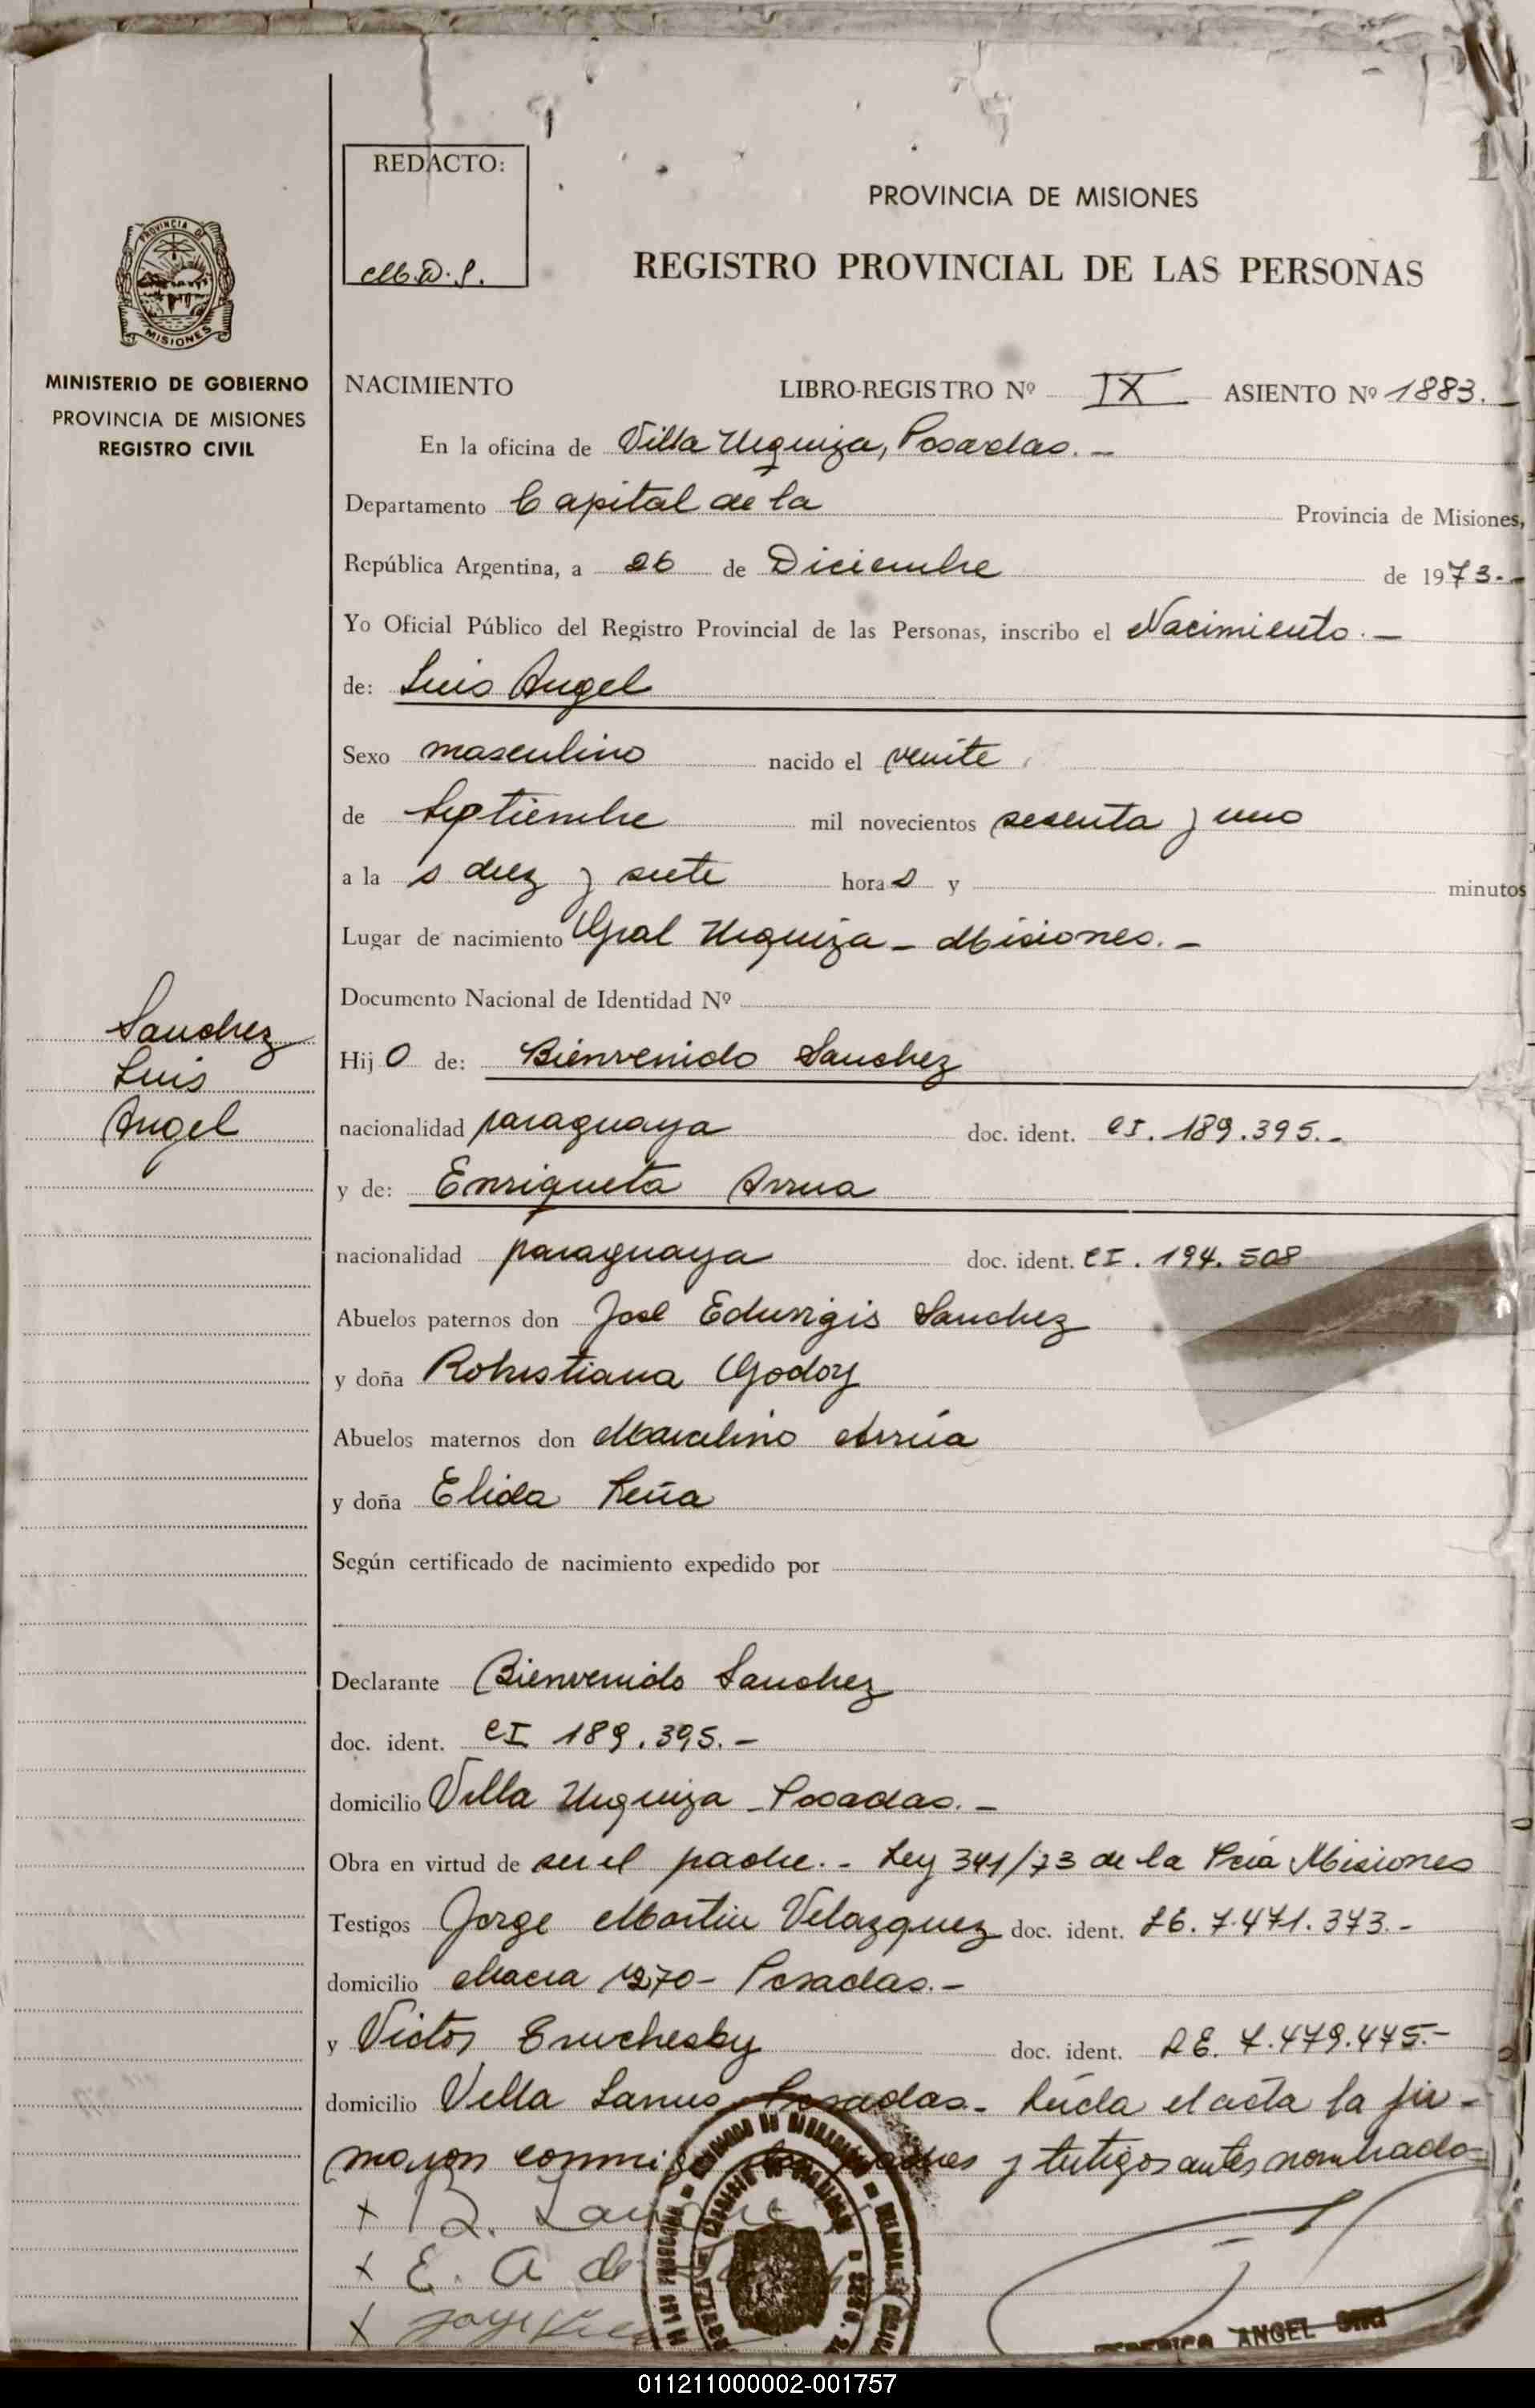 REDACTO:
M.D.S.
PROVINCIA DE MISIONES
REGISTRO PROVINCIAL DE LAS PERSONAS
PROVINCIA DE
MISIONES
MINISTERIO DE GOBIERNO
PROVINCIA DE MISIONES
REGISTRO CIVIL
NACIMIENTO LIBRO-REGISTRO Nº IX ASIENTO Nº 1883.
En la oficina de Villa Urquiza, Posadas. -
Departamento Capital de la Provincia de Misiones,
República Argentina, a 26 de Diciembre de 1973.-
Yo Oficial Público del Registro Provincial de las Personas, inscribo el Nacimiento. -
de: Luis Angel
Sexo masculino nacido el veinte
de Septiembre mil novecientos sesenta y uno
a la s diez y siete horas y minutos
Lugar de nacimiento Gral Urquiza - Misiones. -
Documento Nacional de Identidad Nº
Sanchez
Luis
Angel
Hij o de: Bienvenido Sanchez
nacionalidad paraguaya doc. ident. CI. 189.395.-
y de: Enriqueta Arrua
nacionalidad paraguaya doc. ident. CI. 194.508
Abuelos paternos don José Eduvigis Sanchez
y doña Robustiana Godoy
Abuelos maternos don Marcelino Arrúa
y doña Elida Peña
Según certificado de nacimiento expedido por
Declarante Bienvenido Sanchez
doc. ident. CI 189.395.-
domicilio Villa Urquiza - Posadas. -
Obra en virtud de ser el padre. - Ley 341/73 de la Pcia Misiones
Testigos Jorge Martin Velazquez doc. ident. LE. 7.471.373.-
domicilio 1270 - Posadas. -
y Victor doc. ident. LE. 7.479.475.-
domicilio Villa Lanus, Posadas - Leída el acta la fir-
maron conmigo los padres y testigos antes nombrado
x B. Sanche
x E. A de
x Jorge
ANGEL
011211000002-001757